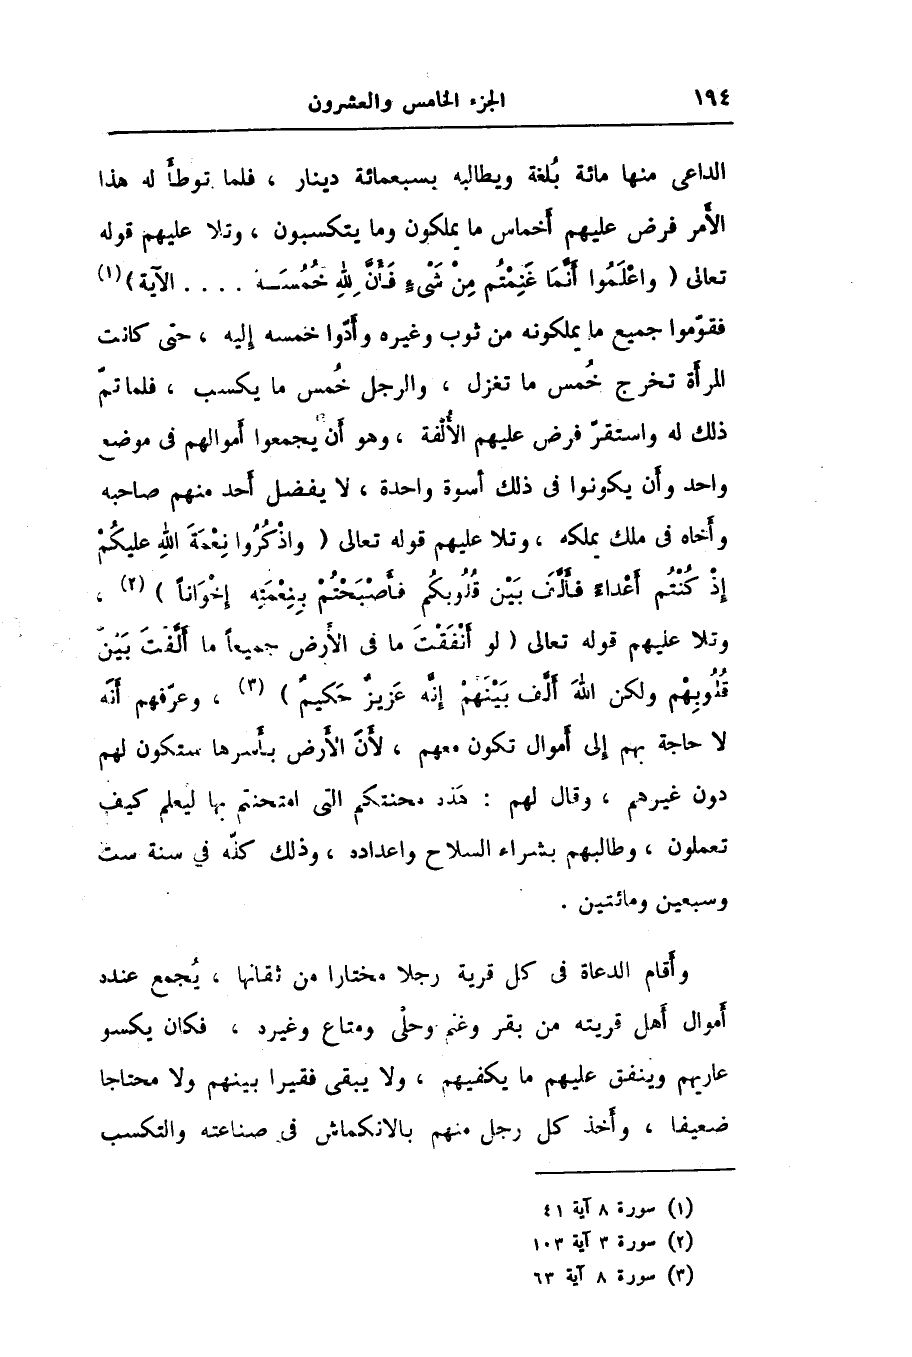 ١٩٤ الجزء الخامس والعشرون
الداعى منها مائة بُلغة ويطالبه بسبعمائة دينار ، فلما توطأ له هذا
الأمر فرض عليهم أخماس ما يملكون وما يتكسبون ، وتلا عليهم قوله
تعالى ( واعْلَمُوا أَنَّمَا غَنِمْتُم مِنْ شَىْءٍ فَأَنَّ لِلهِ خُمُسَـــه . . . . الآية ) (١)
فقوّموا جميع ما يملكونه من ثوب وغيره وأدّوا خمسه إليه ، حتى كانت
المرأة تخرج خُمس ما تغزل ، والرجل خُمس ما يكسب ، فلما تمّ
ذلك له واستقرّ فرض عليهم الأُلْفة ، وهو أن يجمعوا أموالهم فى موضع
واحد وأن يكونوا فى ذلك أسوة واحدة ، لا يفضل أحد منهم صاحبه
وأخاه فى ملك يملكه ، وتلا عليهم قوله تعالى ( واذْكُرُوا نِعْمَةَ اللهِ عليكُمْ
إِذْ كُنْتُم أَعْداءً فأَلَّفَ بَيْن قُلُوبكُم فأَصْبَحْتُمْ بِنِعْمَتِه إخْوَاناً ) (٢) ،
وتلا عليهم قوله تعالى ( لو أَنْفَقْتَ ما فى الأَرض جميعاً ما أَلَّفْتَ بَيْنَ
قُلُوبِهْم ولكن اللهَ أَلَّف بَيْنَهُمْ إنَّه عَزيزٌ حَكيمٌ ) (٣) ، وعرّفهم أنّه
لا حاجة بهم إلى أموال تكون معهم ، لأَنّ الأَرض بأَسرها ستكون لهم
دون غيرهم ، وقال لهم : هَذه محنتكم التى امتحنتم بها ليعلم كيف
تعملون ، وطالبهم بشراء السلاح واعداده ، وذلك كلّه في سنة ست
وسبعين ومائتين .
وأَقام الدعاة فى كل قرية رجلا مختارا من ثقاتها ، يُجمع عنده
أموال أهل قريته من بقر وغنم وحلْى ومتاع وغيره ، فكان يكسو
عاريهم وينفق عليهم ما يكفيهم ، ولا يبقى فقيرا بينهم ولا محتاجا
ضعيفا ، وأخذ كل رجل منهم بالانكماش فى صناعته والتكسب
(١) سورة ٨ آية ٤١
(٢) سورة ٣ آية ١٠٣
(٣) سورة ٨ آية ٦٣